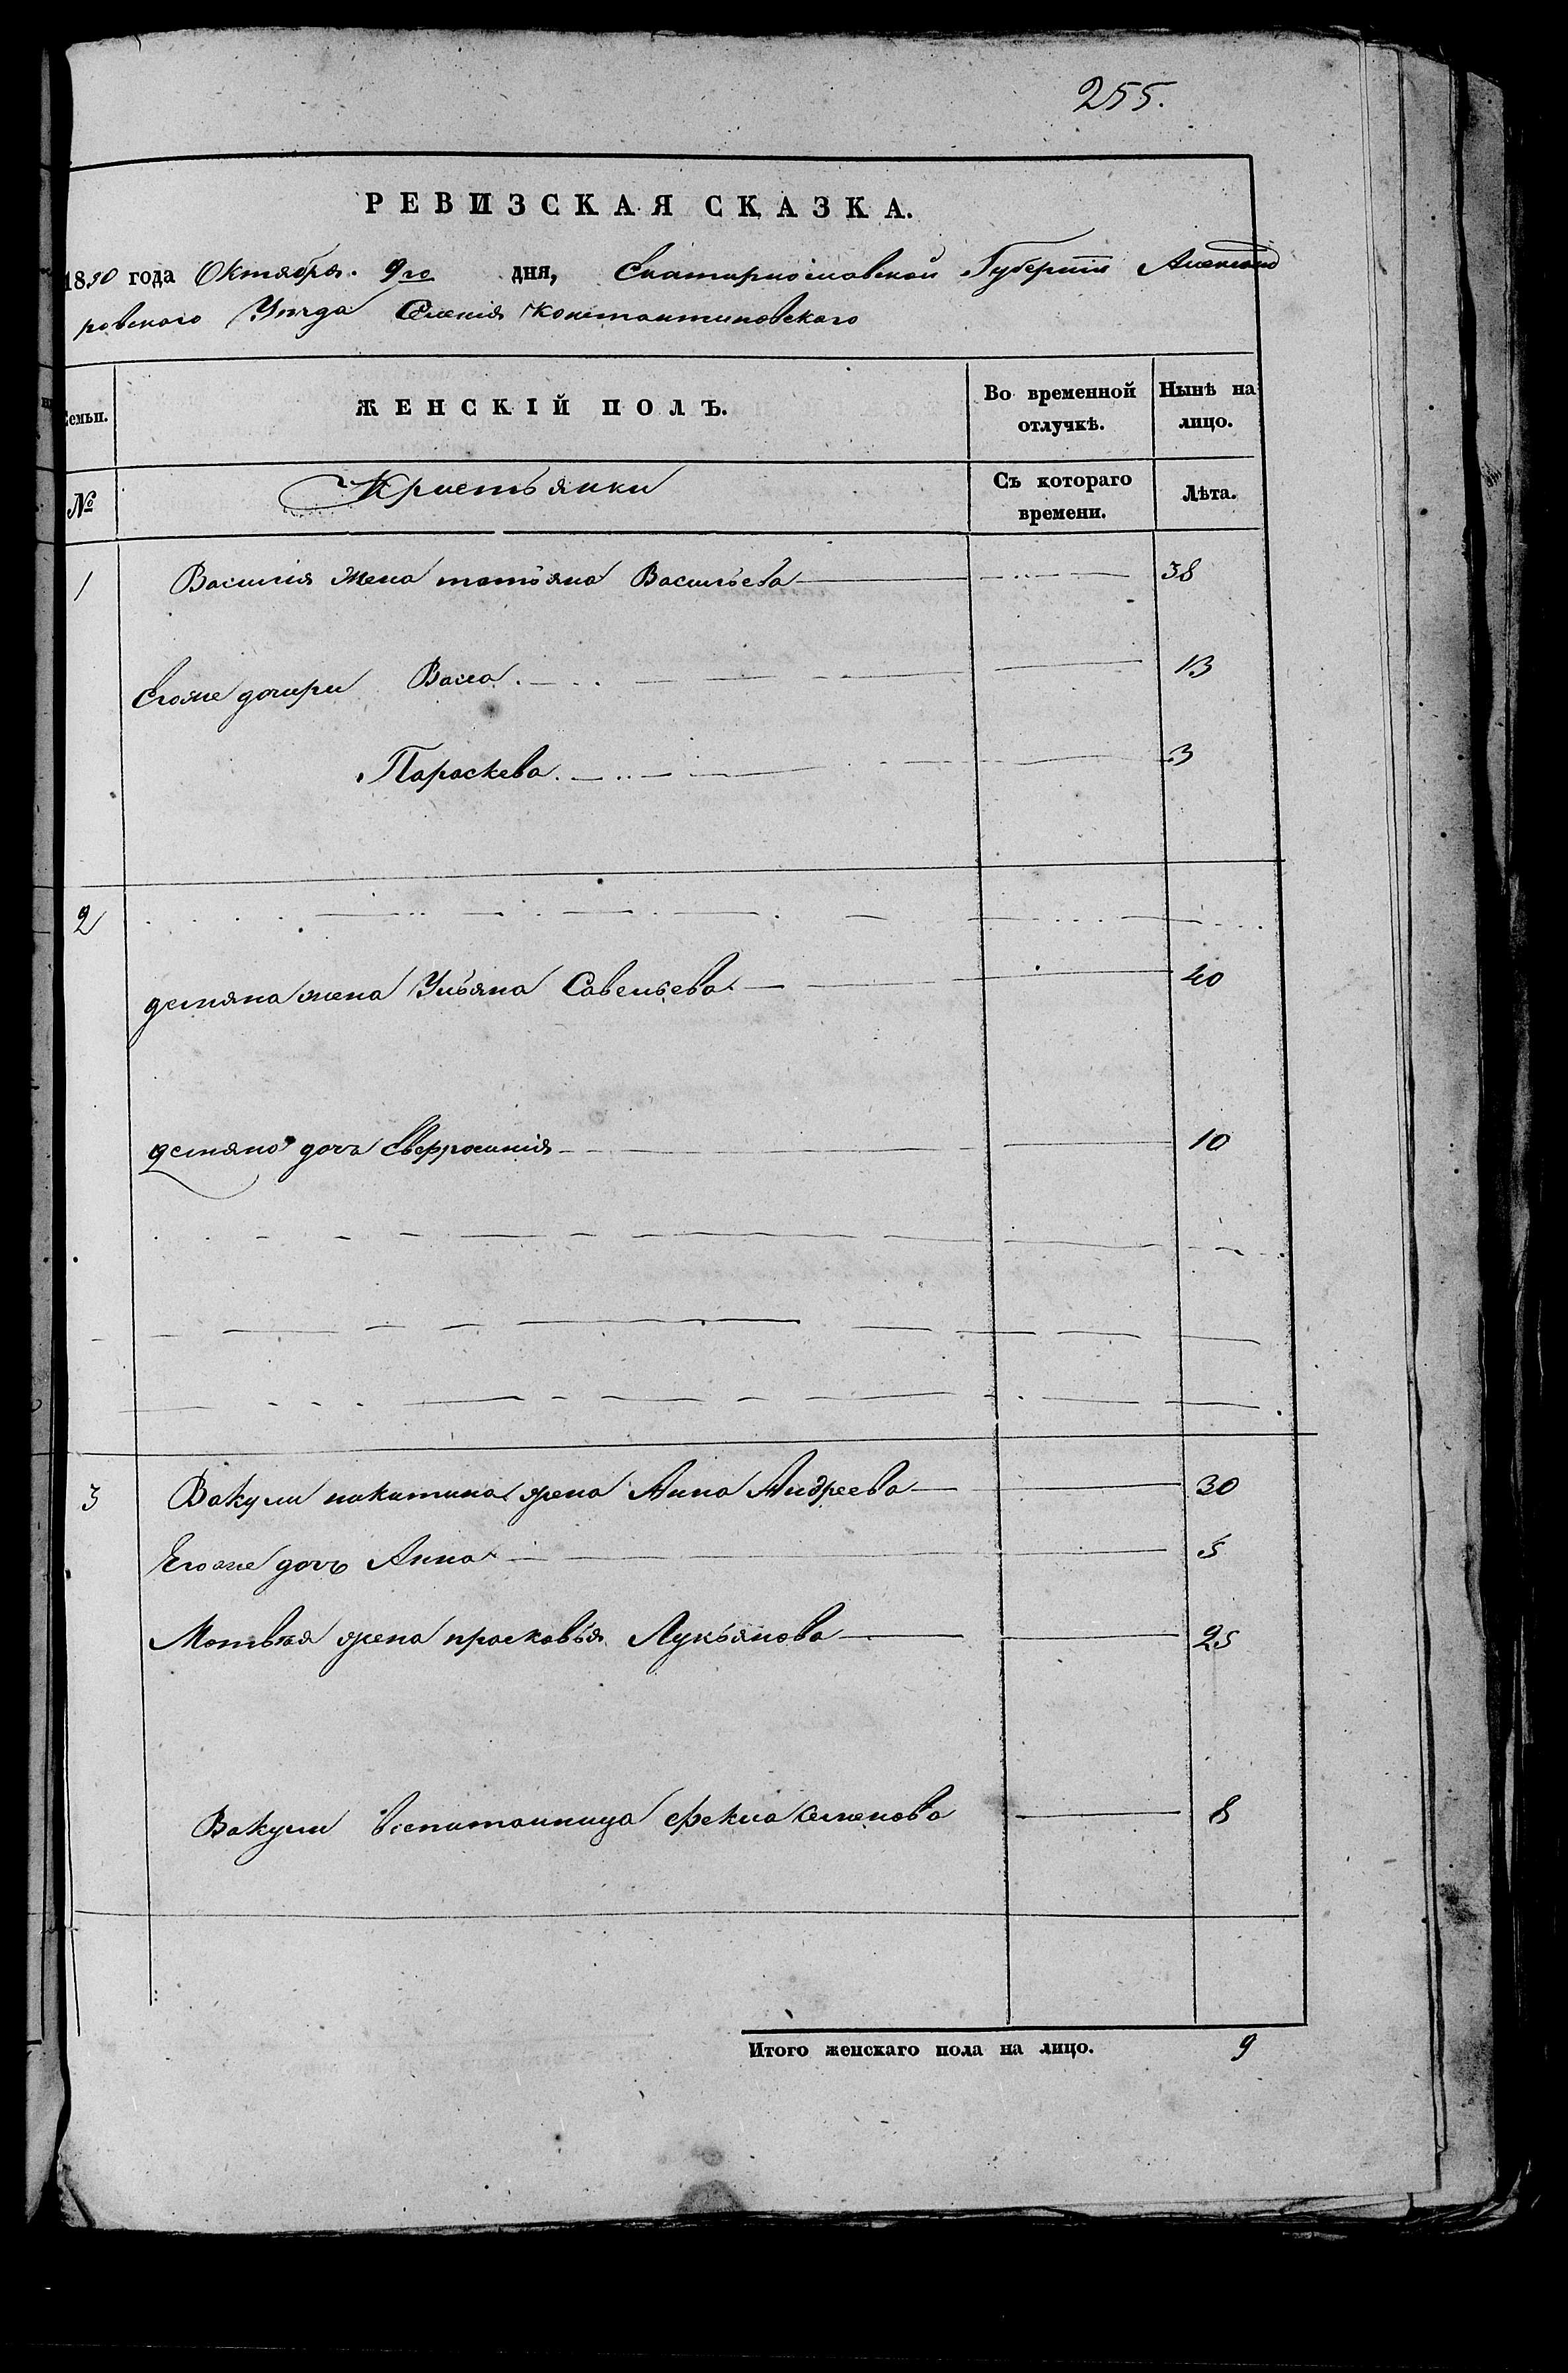 255.
РЕВИЗСКАЯ СКАЗКА.
1850 года Октября 9го дня, Екатеринославской Губернии Александ
ровского Уезда Селения Константиновского
Семьи. ЖЕНСКІЙ ПОЛЪ. Во временной отлучкѣ. Нынѣ на лицо.
№ Крестьянки Съ котораго времени. Лѣта.
1 Василия жена татьяна Васильева 38
Егоже дочери Васса 13
Параскева 3
2
демяна жена Ульяна Савельева 40
демяна дочь Евфросиния 10
3 Вакули никитина жена Анна Андреева 30
Егоже дочь Анна 5
Матвея жена прасковья Лукьянова 25
Вакули воспитанница фекла семенова 8
Итого женскаго пола на лицо. 9